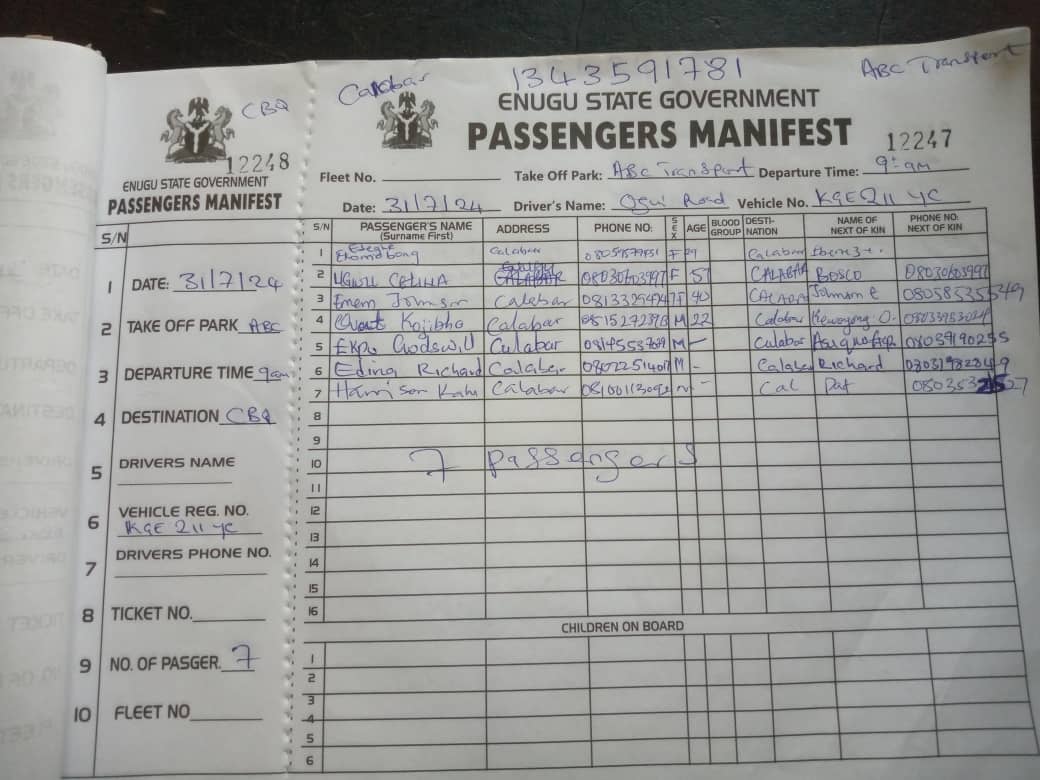 CBQ
12248
ENUGU STATE GOVERNMENT
PASSENGERS MANIFEST
S/N
1 DATE: 31/7/24
2 TAKE OFF PARK ABC
3 DEPARTURE TIME 9am
4 DESTINATION CBQ
5 DRIVERS NAME
6 VEHICLE REG. NO.
KGE 211 YC
7 DRIVERS PHONE NO.
8 TICKET NO.
9 NO. OF PASGER. 7
10 FLEET NO
Calabar 1343591781 ABC Transport
ENUGU STATE GOVERNMENT
PASSENGERS MANIFEST 12247
Fleet No. Take Off Park: ABC Transport Departure Time: 9:am
Date: 31/7/24 Driver's Name: Ogui Road Vehicle No. KGE 211 YC
S/N PASSENGER'S NAME (Surname First) ADDRESS PHONE NO: SEX AGE BLOOD GROUP DESTI-NATION NAME OF NEXT OF KIN PHONE NO: NEXT OF KIN
1 Calabar F Calabar
2 CALABAR 08030603997 F 57 CALABAR BOSCO 08030603997
3 Emem Johnson Calabar F 40 CALABAR Johnson E
4 Calabar M 22 Calabar
5 Ekpo Godswill Calabar M - Calabar 08039190255
6 Eding Richard Calabar M - Calabar Richard
7 Harrison Calabar M - Cal Pat
8
9
10 7 Passengers
11
12
13
14
15
16
CHILDREN ON BOARD
1
2
3
4
5
6